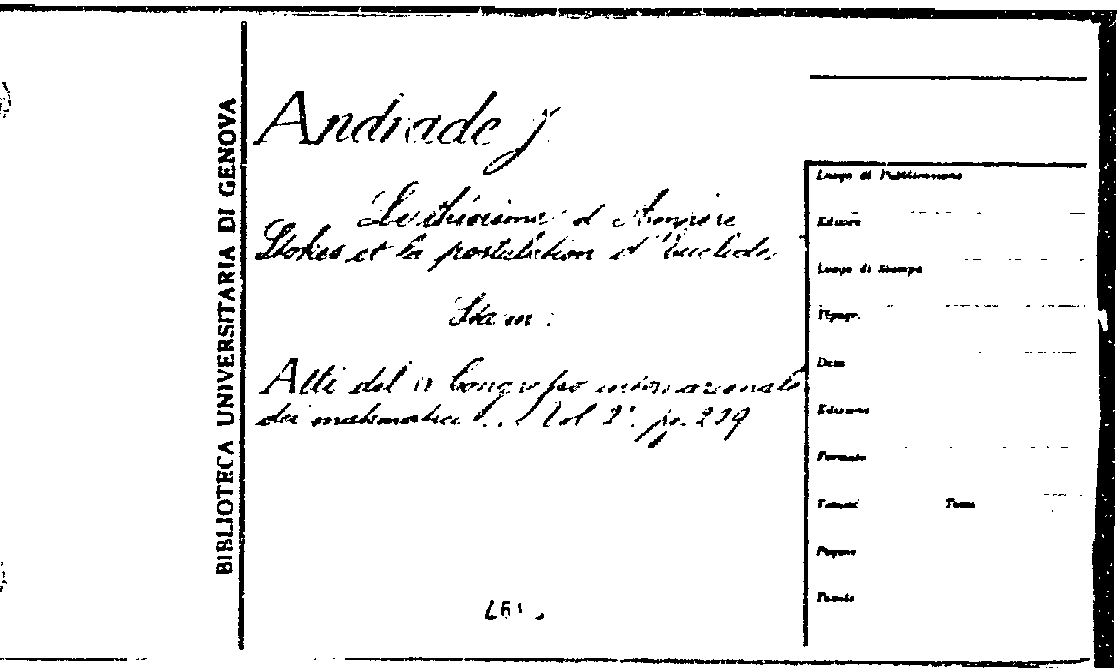 BIBLIOTECA UNIVERSITARIA DI GENOVA
Andrade J.
Le théorème d'Ampère
Stokes et la postulation d'Euclide
Atti del IV Congresso internazionale
dei matematici ... Vol 2°. pp. 239
Luogo di Pubblicazione
Editore
Luogo di Stampa
Tipogr.
Data
Edizione
Formato
Volumi Tomi
Pagine
Tavole